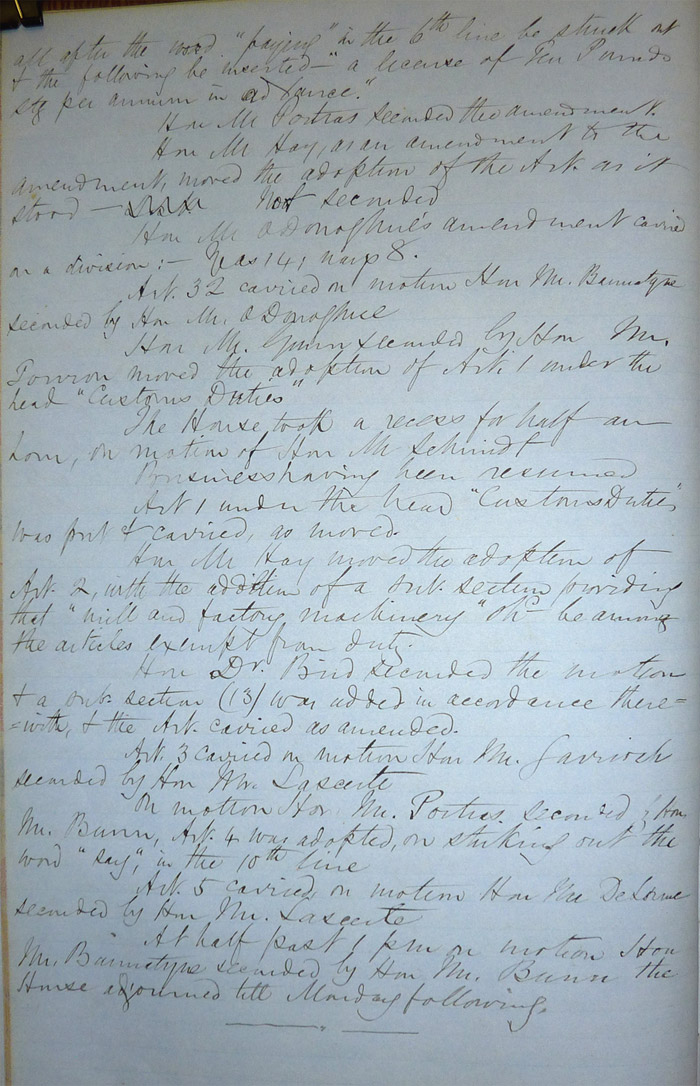 all after the word "paying" in the 6th line be struck out
& the following be inserted - "a license of Ten Pounds
stg per annum in advance."
Hon Mr Poitras seconded the amendment.
Hon Mr Hay, as an amendment to the
amendment, moved the adoption of the Art. as it
stood - Not seconded
Hon Mr O'Donoghue's amendment carried
on a division: - Yeas 14; nays 8.
Art. 32 carried on motion Hon Mr. Bannatyne
seconded by Hon Mr. O'Donoghue
Hon Mr. Gunn seconded by Hon Mr.
Touron moved the adoption of Art. 1 under the
head "Customs Duties"
The House took a recess for half an
hour, on motion of Hon Mr Schmidt
Business having been resumed
Art 1 under the head "Customs Duties"
was put & carried, as moved.
Hon Mr Hay moved the adoption of
Art. 2, with the addition of a sub. section providing
that "mill and factory machinery" shd be among
the articles exempt from duty.
Hon Dr. Bird seconded the motion
& a sub. section (13) was added in accordance there=
=with, & the Art. carried as amended.
Art. 3 carried on motion Hon Mr. Garrioch
seconded by Hon Mr. Lascerte
On motion Hon. Mr. Poitras seconded by Hon
Mr. Bunn, Art. 4 was adopted, on striking out the
word "say", in the 10th line
Art. 5 carried on motion Hon Mr DeLorme
seconded by Hon Mr. Lascerte
At half past 1 pm on motion Hon
Mr. Bannatyne seconded by Hon Mr. Bunn the
House adjourned till Monday following.